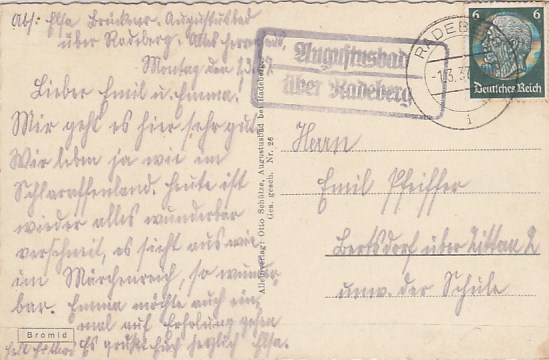 Abs: Elsa Brückner, Augustusbad
über Radeberg. Altes Herrenhaus,
Montag den 1.3.37
Lieber Emil u. Emma!
Mir geht es hier sehr gut.
Wir leben ja wie im
Schlaraffenland. Heute ist
wieder alles wunderbar
verschneit, es sieht aus wie
im Märchenreich, so wunder-
bar. Emma möchte auch ein-
mal auf Erholung gehen
Es grüßt Euch herzlich Elsa.
Bromid
Alleinverlag: Otto Schütze, Augustusbad bei Radeberg.
Ges. gesch. Nr. 26
Augustusbad
über Radeberg
RADEBERG
-1.3.37
i
6 6
Deutsches Reich
Herrn
Emil Pfeiffer
Bertsdorf über Zittau 2
unw. der Schule